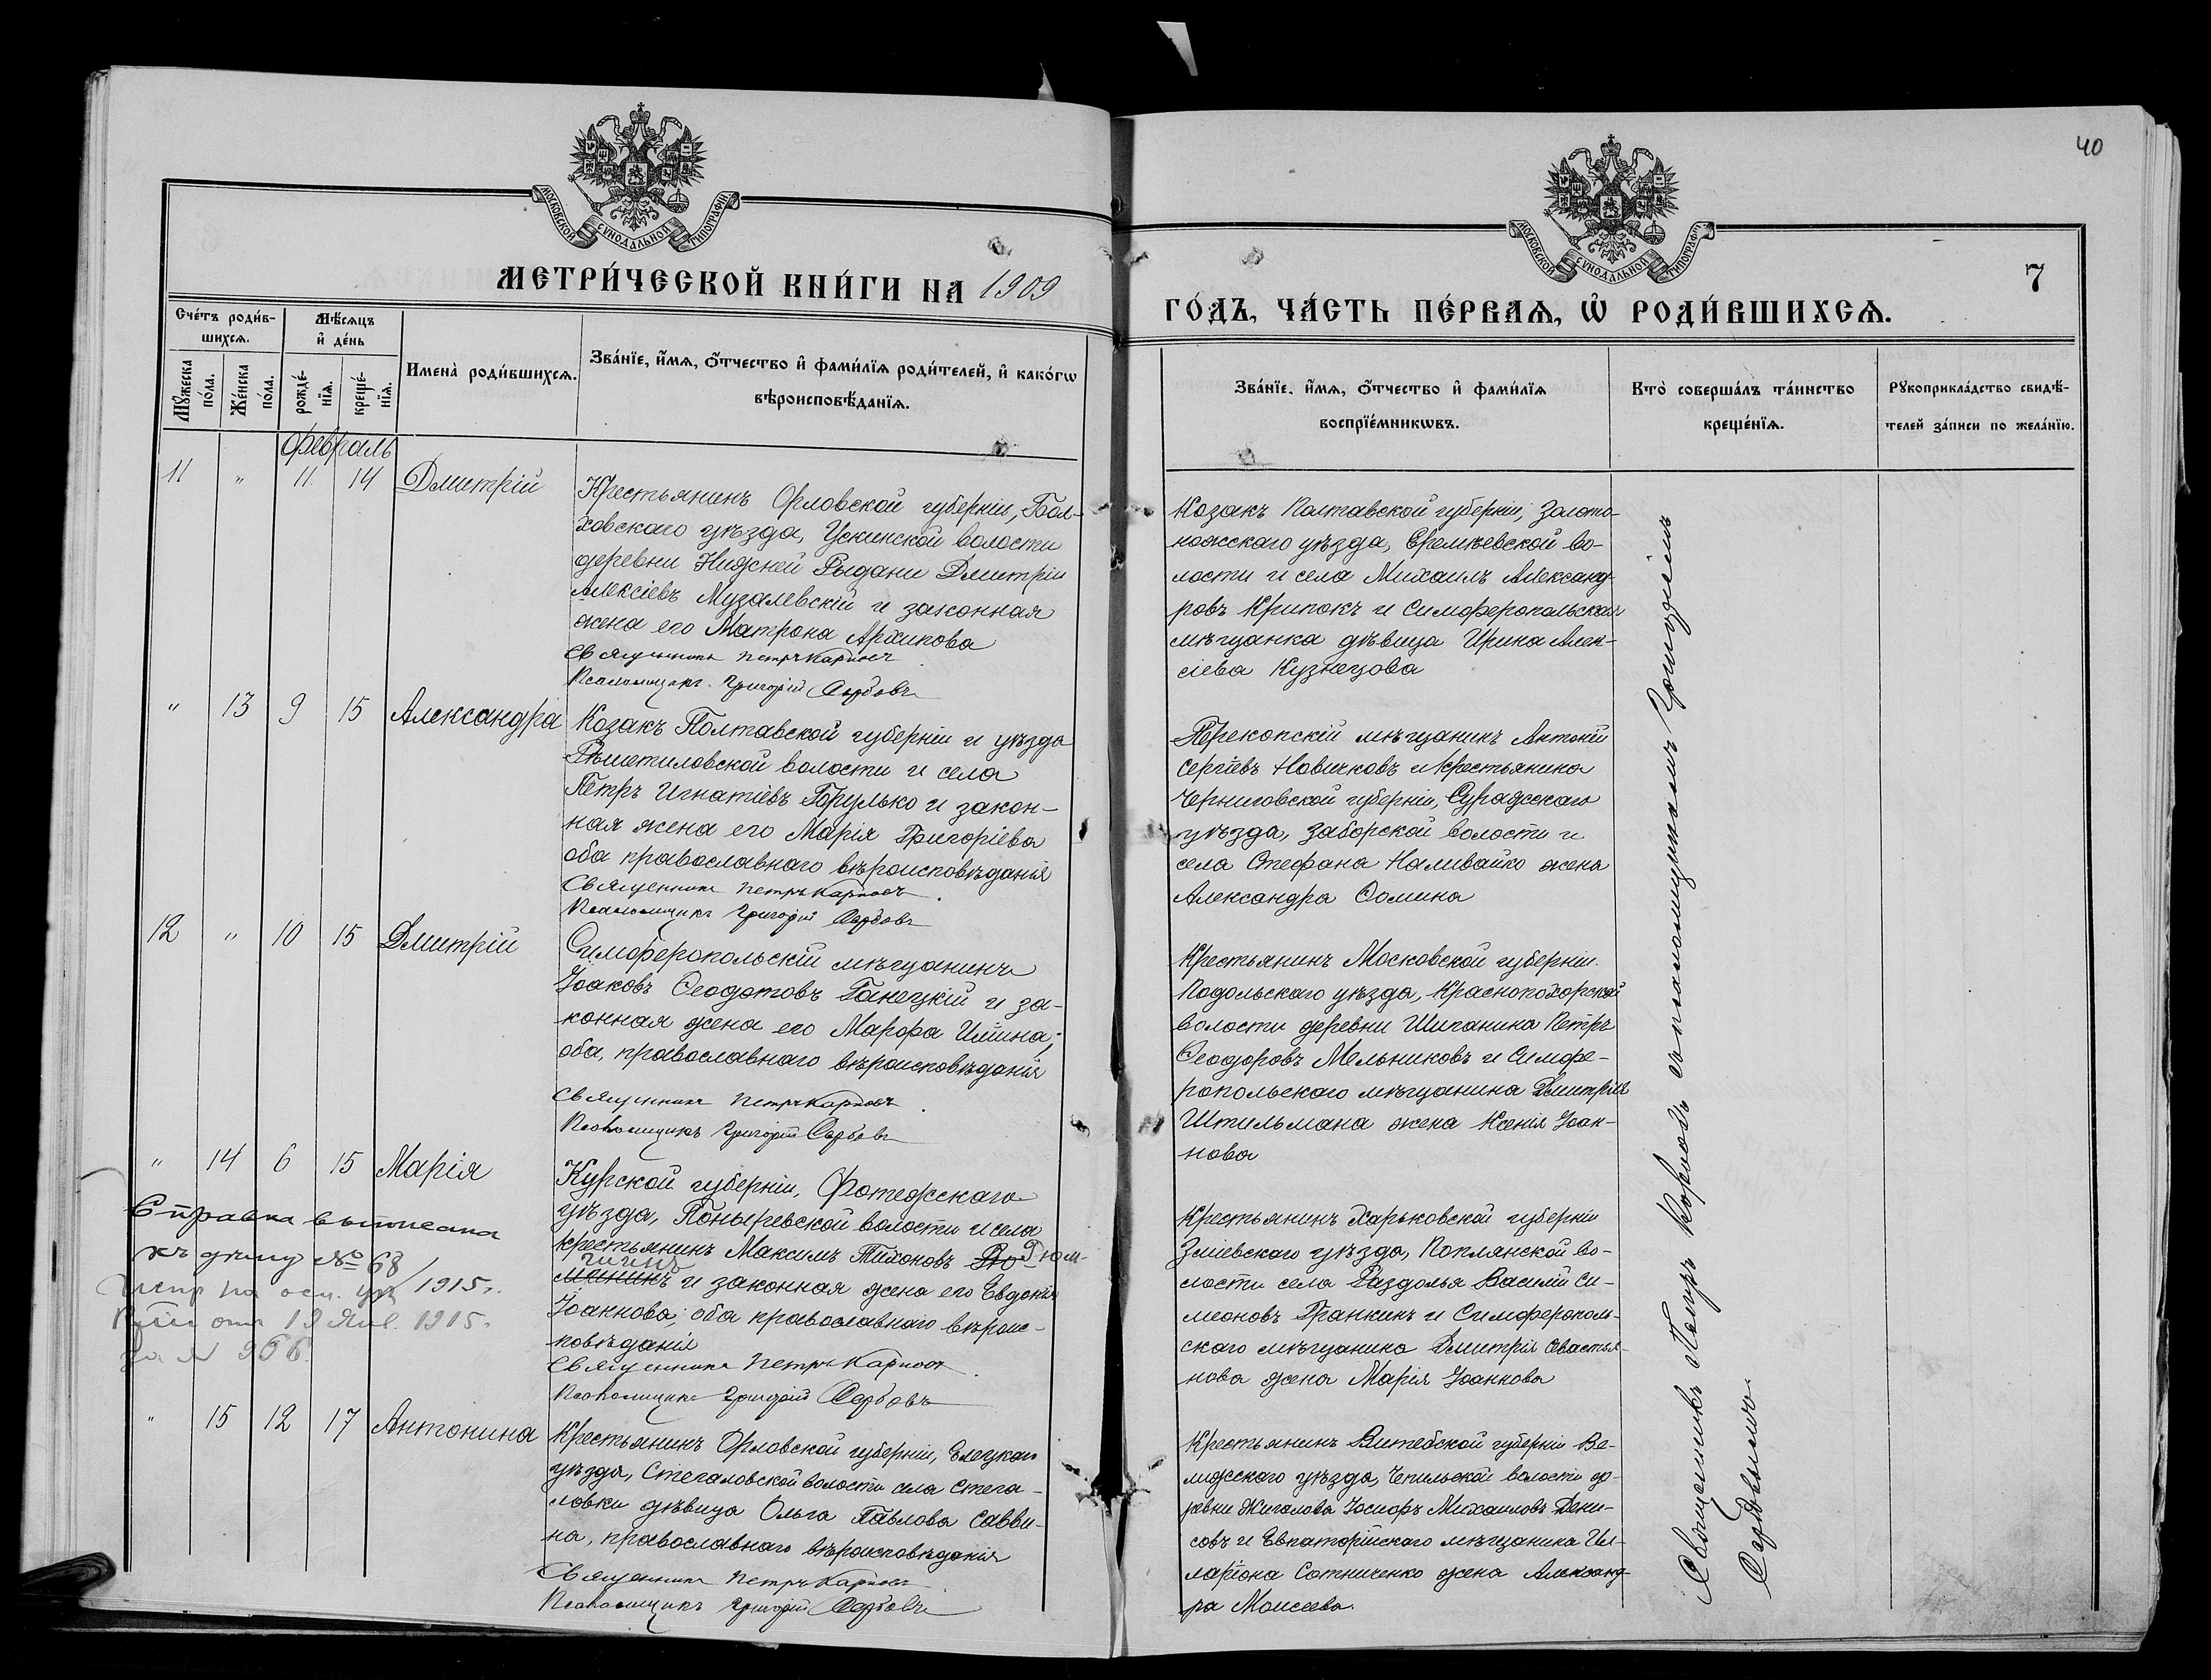 40
МОСКОВСКОЙ СУНОДАЛЬНОЙ ТИПОГРАФІИ
МОСКОВСКОЙ СУНОДАЛЬНОЙ ТИПОГРАФІИ
МЕТРИ́ЧЕСКОЙ КНИ́ГИ НА 1909
ГО́ДЪ, ЧА́СТЬ ПЕ́РВАѦ, Ѡ РОДИ́ВШИХСѦ.
7
Сче́тъ роди́в-
шихсѧ.
Мꙋ́жеска по́ла.
Же́нска по́ла.
Мѣ́сѧцъ и де́нь
рожде́-
нїѧ.
креще́-
нїѧ.
Имена̀ роди́вшихсѧ.
Зва́нїе, и́мѧ, ѻ́тчество и фами́лїѧ роди́телей, и како́гѡ
вѣроисповѣ́данїѧ.
Зва́нїе, и́мѧ, ѻ́тчество и фами́лїѧ
воспрїе́мникѡвъ.
Кто̀ соверша́лъ та́инство
креще́нїѧ.
Рꙋкоприкла́дство свидѣ́-
телей за́писи по жела́нїю.
Февраль
11 " 11. 14 Дмитрій
Крестьянинъ Орловской губерніи, Бол-
ховскаго уѣзда, Ускинской волости
деревни Нижней Рыдани Дмитрій
Алексіевъ Музалевскій и законная
жена его Матрона Архипова
Священникъ Петръ Карповъ
Псаломщикъ Григорій Сербовъ
Козакъ Полтавской губерніи, Золото-
ножскаго уѣзда, Еремѣевской во-
лости и села Михаилъ Александ-
ровъ Крипокъ и Симферопольская
мѣщанка дѣвица Ирина Алек-
сіева Кузнецова
" 13 9 15 Александра
Козакъ Полтавской губерніи и уѣзда
Рѣшетиловской волости и села
Петръ Игнатіевъ Горулько и закон-
ная жена его Марія Григоріева
оба православнаго вѣроисповѣданія
Священникъ Петръ Карповъ
Псаломщикъ Григорій Сербовъ
Перекопскій мѣщанинъ Антоній
Сергіевъ Новичковъ и крестьянина
Черниговской губерніи, Суражскаго
уѣзда, Заборской волости и
села Стефана Наливайко жена
Александра Фомина
12 " 10 15 Дмитрій
Симферопольскій мѣщанинъ
Іоаковъ Феодотовъ Ганецкій и за-
конная жена его Марфа Илiина;
оба православнаго вѣроисповѣданія
Священникъ Петръ Карповъ
Псаломщикъ Григорій Сербовъ
Крестьянинъ Московской губерніи.
Подольскаго уѣзда, Краснопохорской
волости деревни Шипанина Петръ
Феодоровъ Мельниковъ и Симфе-
ропольскаго мѣщанина Дмитрія
Штильмана жена Ксенія Іоан-
нова
" 14 6 15 Марія
Курской губерніи, Фатежскаго
уѣзда, Поныревской волости и села
крестьянинъ Максимъ Тихоновъ Тюм-
и законная жена его Евдокія
Іоаннова; оба православнаго вѣроис-
повѣданія
Священникъ Петръ Карповъ
Псаломщикъ Григорій Сербовъ
Справка выписана
къ дѣлу № 68/1915 г.
на осн. ук.
от 19 Янв. 1915 г.
за №
Крестьянинъ Харьковской губерніи
Зміевскаго уѣзда, Поплянской во-
лости села Раздолья Василій Си-
меоновъ Гранкинъ и Симферополь-
скаго мѣщанина Дмитрія Севастья-
нова жена Марія Іоаннова
" 15 12 17 Антонина
Крестьянинъ Орловской губерніи, Елецкаго
уѣзда, Стегаловской волости села Стега-
ловки дѣвица Ольга Павлова Савви-
на, православнаго вѣроисповѣданія
Священникъ Петръ Карповъ
Псаломщикъ Григорій Сербовъ
Крестьянинъ Витебской губерніи Ве-
лижскаго уѣзда, Чепильской волости де-
ревни Жигалова Іосифъ Михаиловъ Дени-
совъ и Евпаторійскаго мѣщанина Ил-
ларіона Сотниченко жена Александ-
ра Моисеева.
Священникъ Петръ Карповъ съ псаломщикомъ Григоріемъ
Сербовымъ.